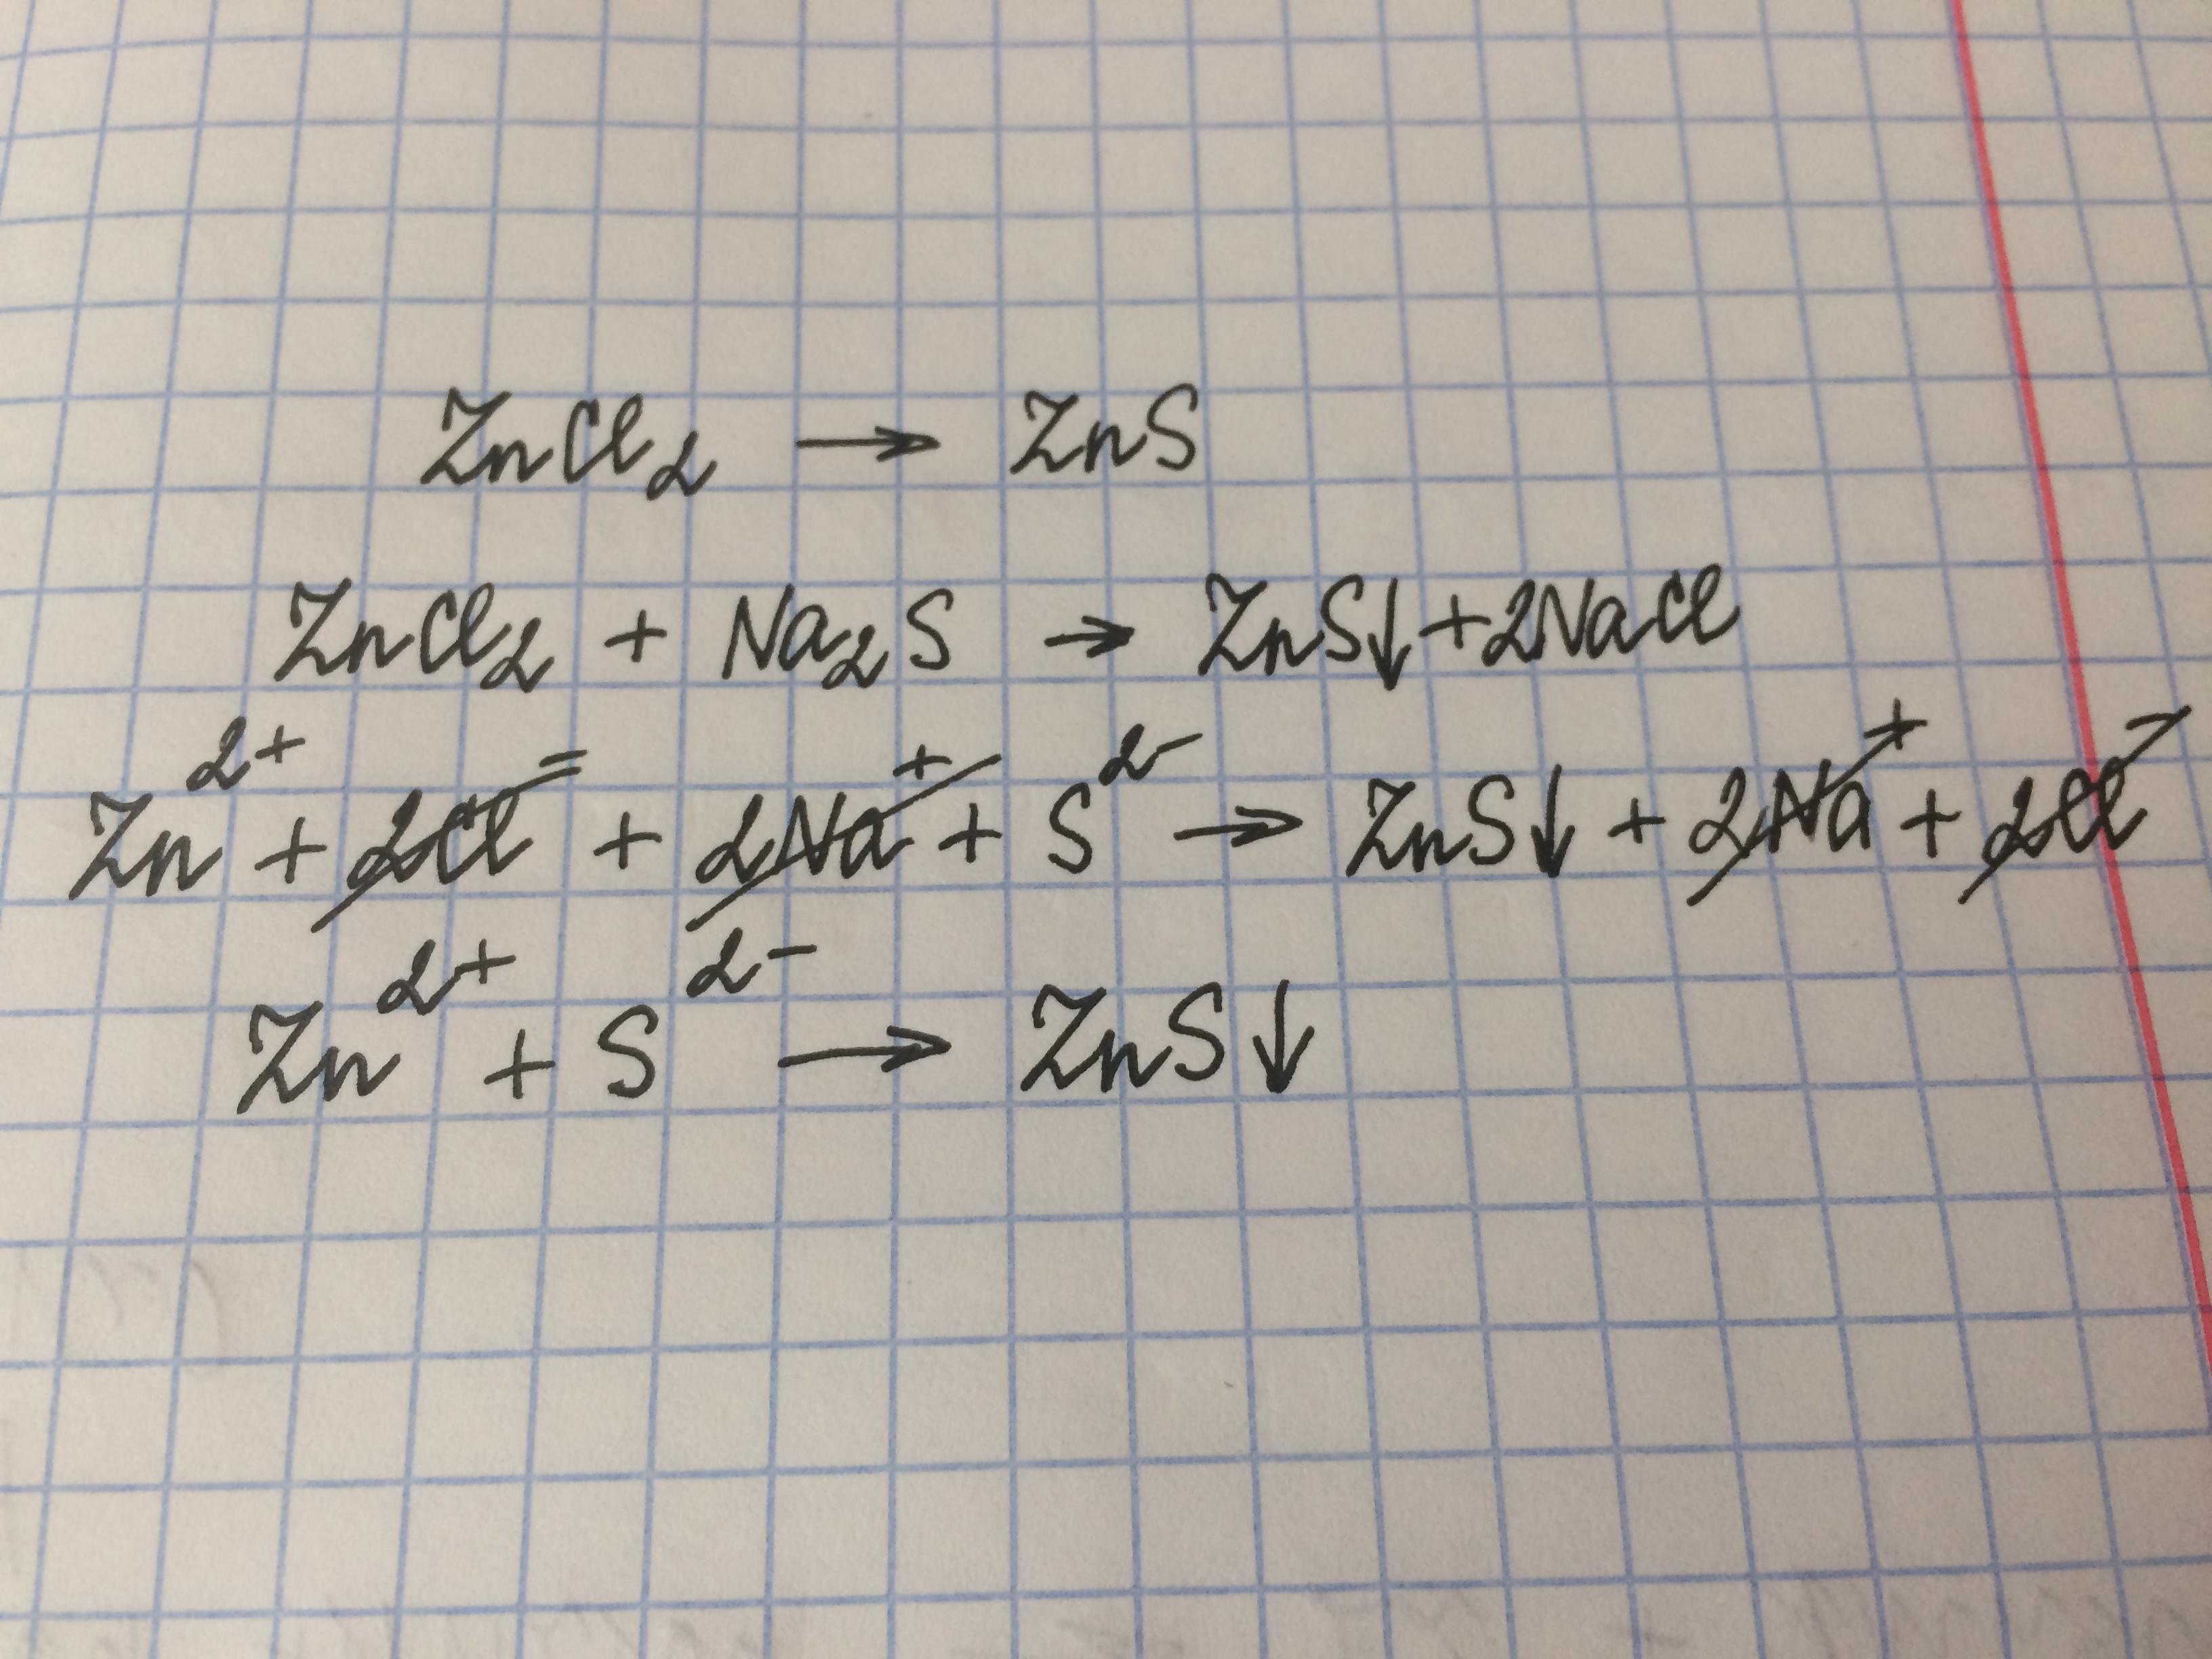 ZnCl₂ → ZnS
ZnCl₂ + Na₂S → ZnS↓ + 2NaCl
Zn²⁺ + 2Cl⁻ + 2Na⁺ + S²⁻ → ZnS↓ + 2Na⁺ + 2Cl⁻
Zn²⁺ + S²⁻ → ZnS↓